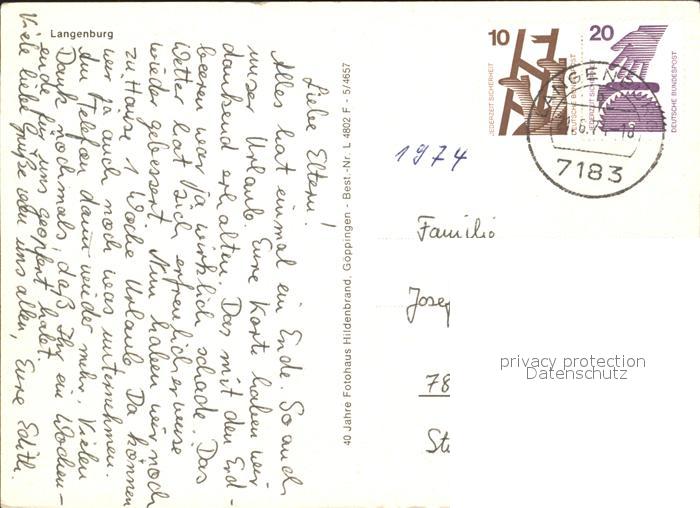 Langenburg
Liebe Eltern!
Alles hat einmal ein Ende. So auch
unser Urlaub. Eure Karte haben wir
dankend erhalten. Das mit den Erd-
beeren war ja wirklich schade. Das
Wetter hat sich erfreulicherweise
wieder gebessert. Nun haben wir noch
zu Hause 1 Woche Urlaub. Da können
wir ja auch noch was unternehmen.
Am Telefon dann wieder mehr. Vielen
Dank nochmals, daß Ihr ein Wochen-
ende für uns geopfert habt.
Viele liebe Grüße von uns allen, Eure Edith.
40 Jahre Fotohaus Hildenbrand, Göppingen - Best.-Nr. L 4802 F - 5/4657
10
JEDERZEIT SICHERHEIT
DEUTSCHE BUNDESPOST
20
JEDERZEIT SICHERHEIT
DEUTSCHE BUNDESPOST
7183
1974
Familie
Josep
78
privacy protection
Datenschutz